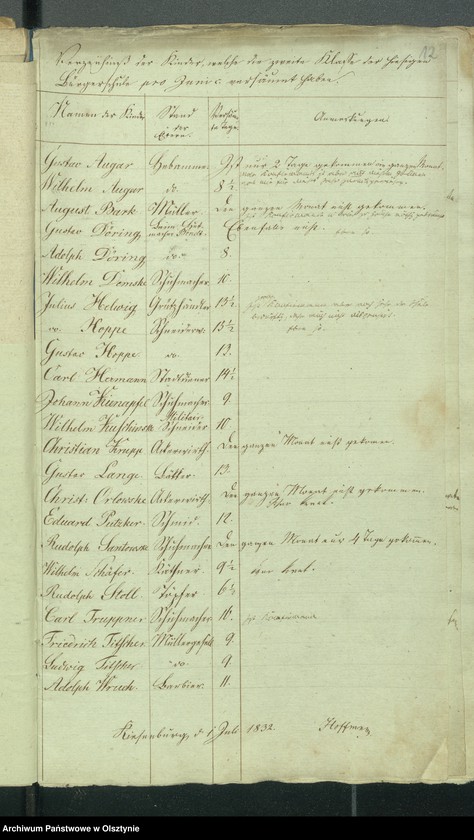 12
Verzeichniß der Kinder, welche die zweite Klasse der hiesigen
Bürgerschule pro Juni c. versäumt haben.
Namen der Kinder Stand der Eltern Versäumte Tage Anmerkungen
Gustav Augar Hebamme Ist nur 2 Tage gekommen im ganzen Monat.
Wilhelm Augar do. 8 1/2
August Bark Müller Den ganzen Monat nicht gekommen.
Gustav Döring Ebenfalls nicht.
Adolph Döring do 8.
Wilhelm Domske Schuhmacher 10.
Julius Helwig Grützhändler 13 1/2
do. Hoppe Schneider 15 1/2
Gustav Hoppe do. 13.
Carl Hermann 14 1/2
Johann Kunapfel Schuhmacher 9.
Wilhelm Militair Schneider 10
Christian Krupp Ackerwirth. Den ganzen Monat nicht gekommen.
Gustav Lange 13.
Christ. Orlowske Ackerwirth Den ganzen Monat nicht gekommen.
Eduard Putzker Schmid. 12.
Rudolph Santowske Schuhmacher Den ganzen Monat nur 4 Tage gekommen.
Wilhelm Schäfer Käthner 9 1/2 war krank.
Rudolph Stoll Töpfer 6 1/2
Carl Truppner Schuhmacher 16.
Friedrich Titscher Müllergesell 9.
Ludwig Titscher do 9.
Adolph Wruck Barbier. 11.
Riesenburg, d 1 Juli 1832. Hoffmann
Archiwum Państwowe w Olsztynie